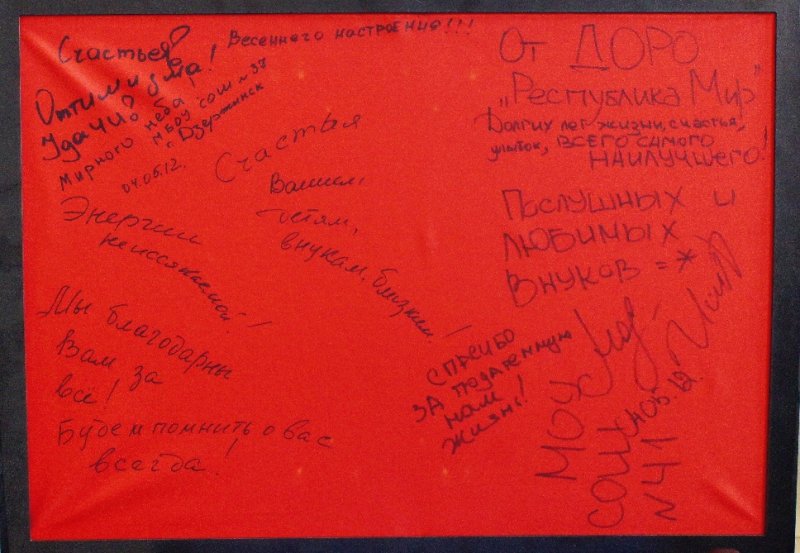 Счастья!
Весеннего настроения!!!
Оптимизма!
Удачи!
Мирного неба!
МБОУ СОШ №37
г. Дзержинск
04.05.12.
Счастья
Вашим
детям,
внукам, близким!
Энергии
неиссякаемой!
Мы благодарны
Вам за
всё!
Будем помнить о вас
всегда!
От ДОРО
„Республика Мир"
Долгих лет жизни, счастья,
улыбок, ВСЕГО САМОГО
НАИЛУЧШЕГО!
Послушных и
любимых
внуков =*
СПАСИБО
ЗА подаренную
нам
жизнь!
МОУ
СОШ
№41
4.05.12.